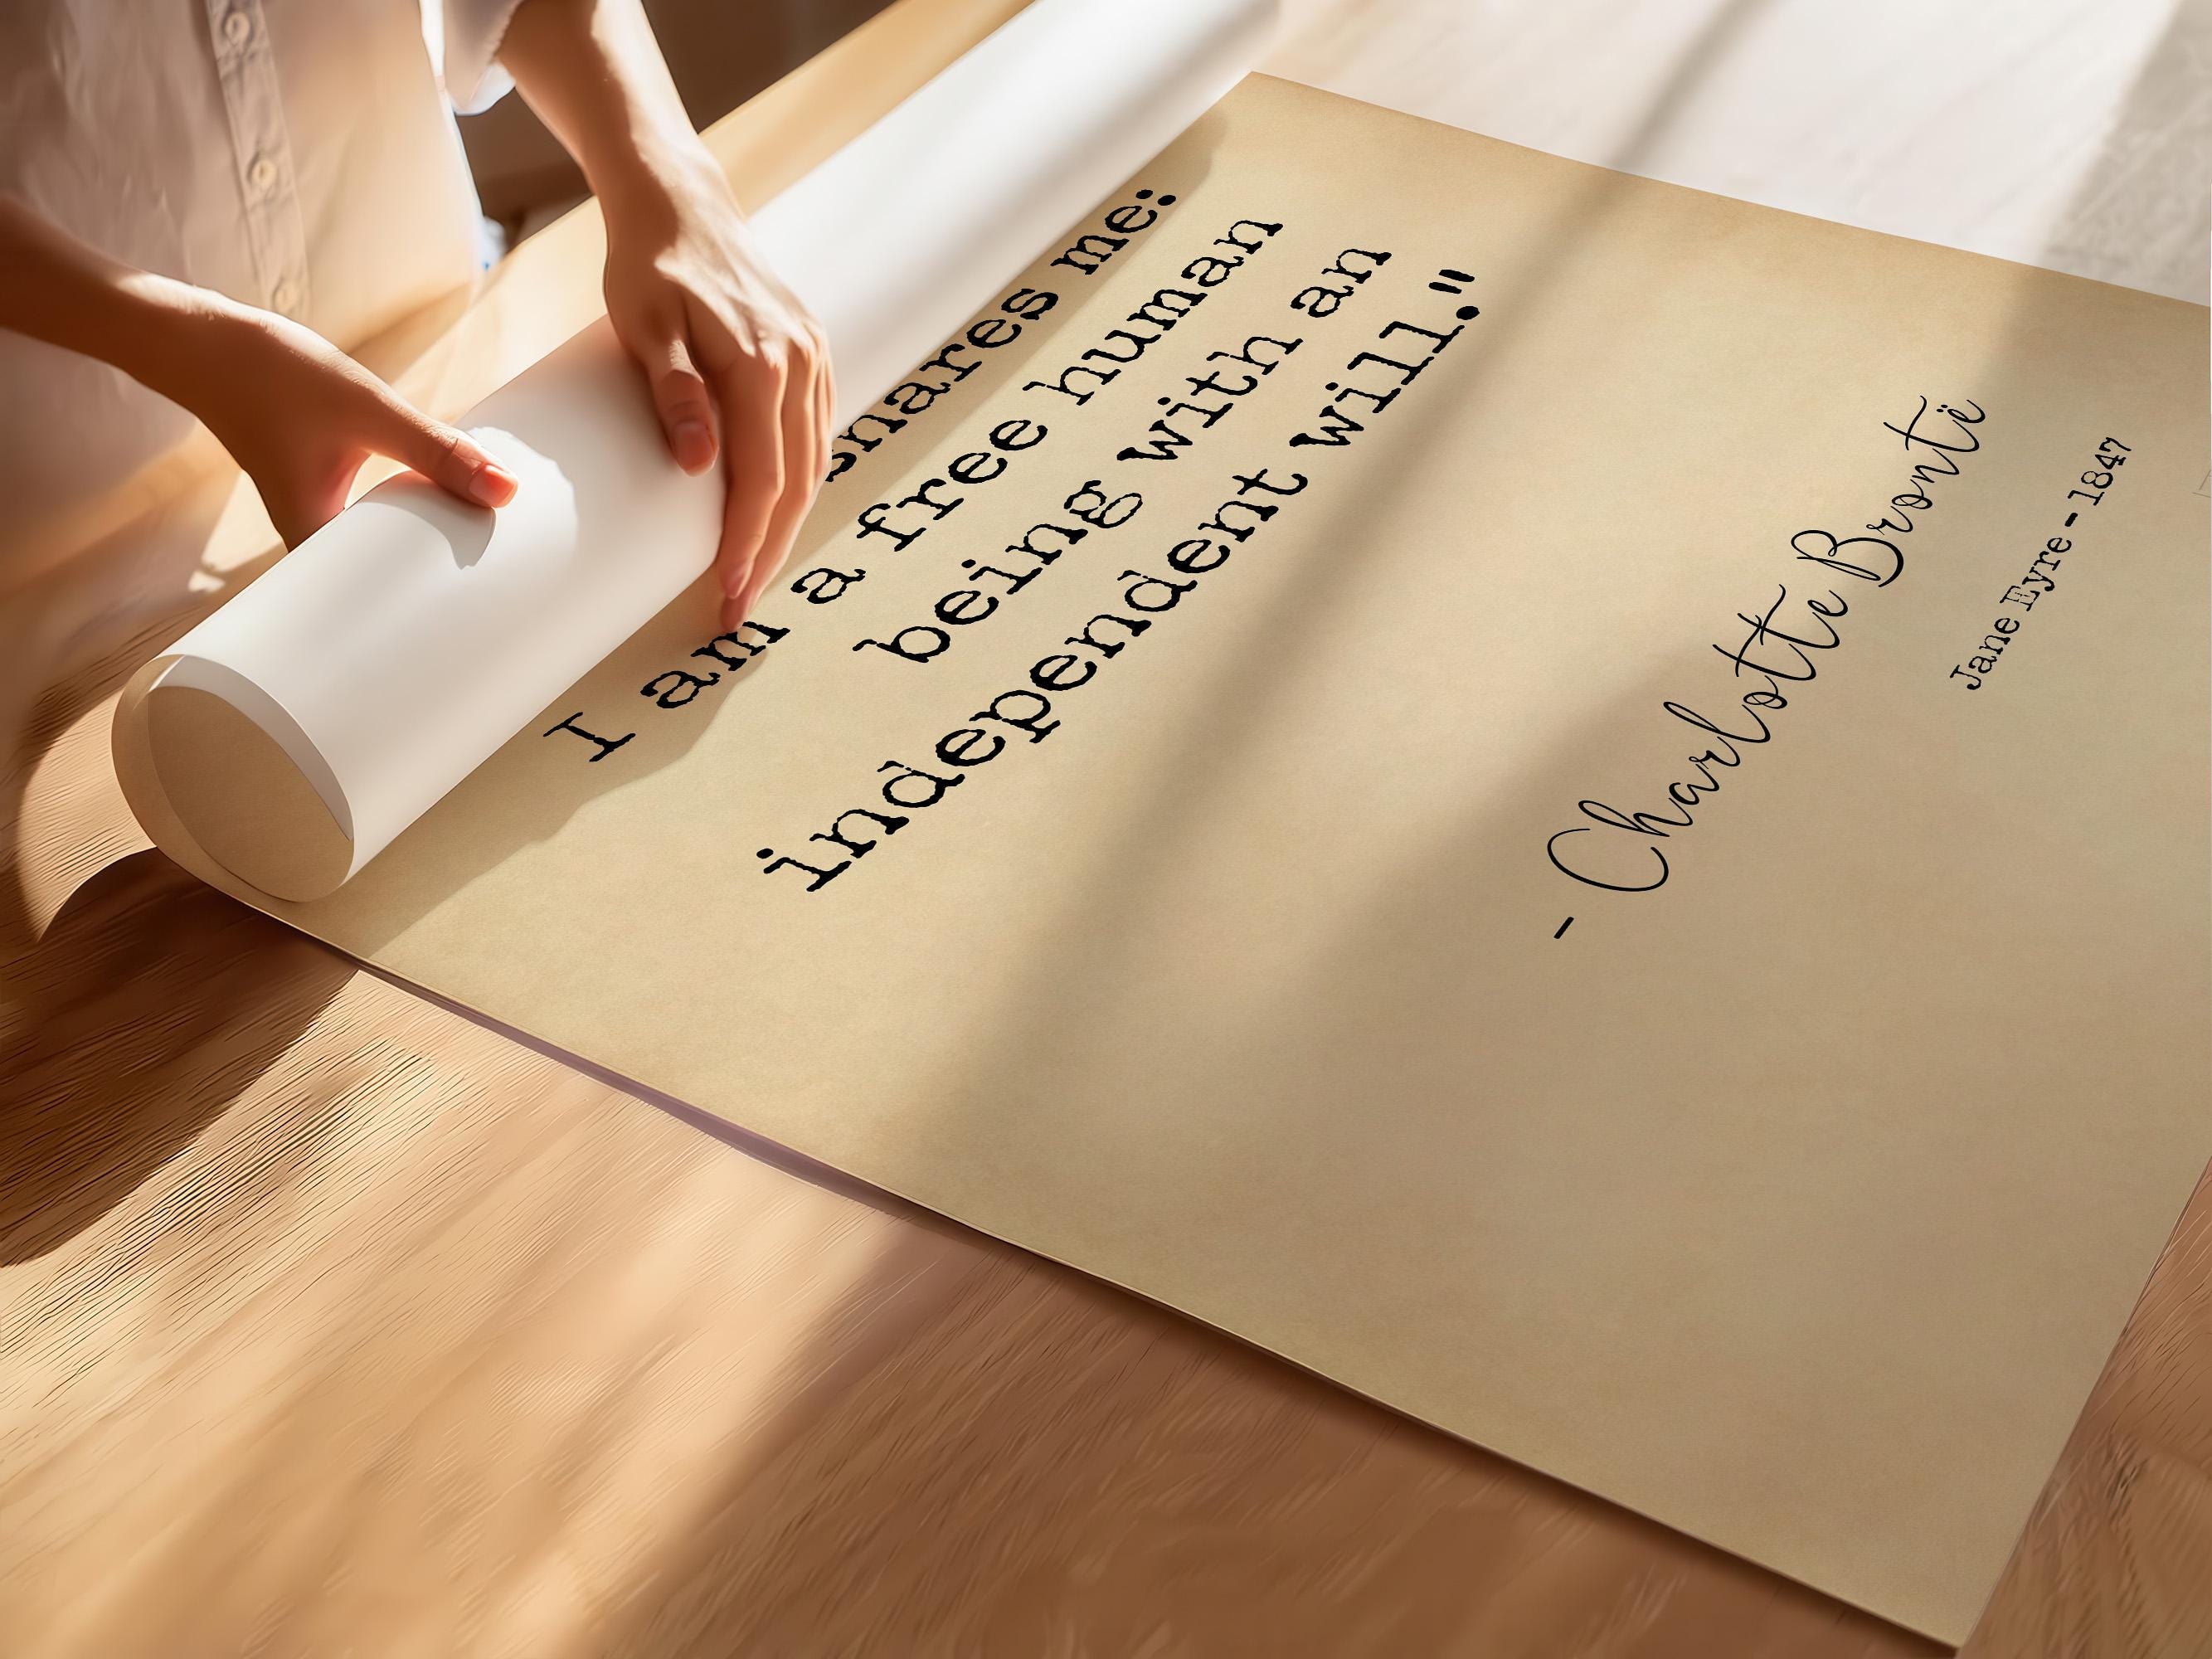 snares me:
I am a free human
being with an
independent will."
- Charlotte Brontë
Jane Eyre - 1847